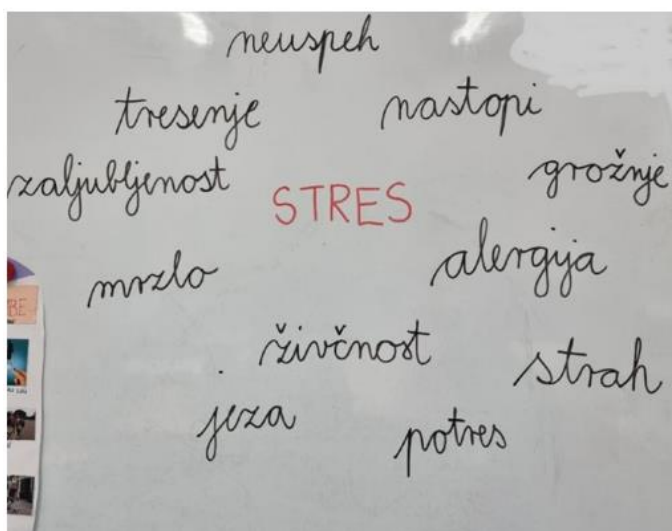 neuspeh
tresenje
nastopi
zaljubljenost
grožnje
STRES
mrzlo
alergija
živčnost
strah
jeza
potres
BE